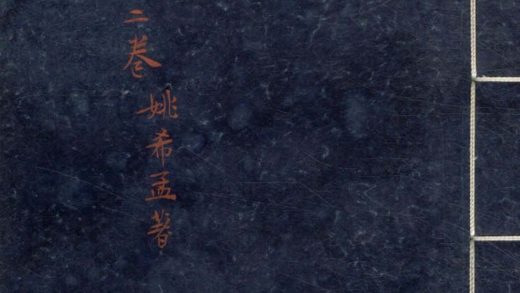 二卷姚希孟著